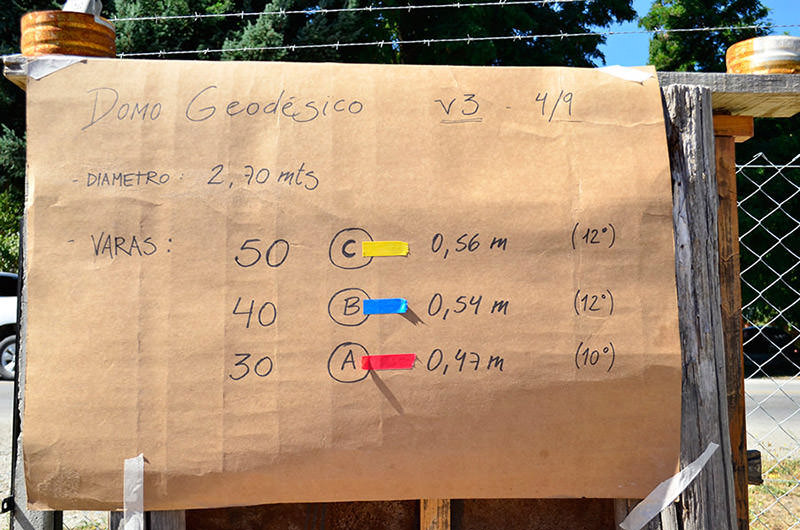 Domo Geodésico v3 - 4/9
- DIAMETRO: 2,70 mts
- VARAS: 50 C 0,56 m (12°)
40 B 0,54 m (12°)
30 A 0,47 m (10°)